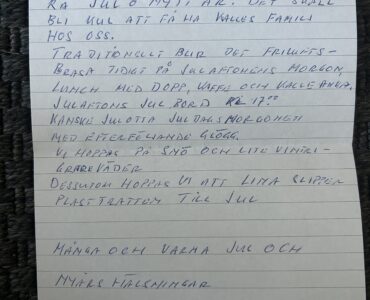 RA JUL O NYTT ÅR. DET SKALL
BLI KUL ATT FÅ HA KALLES FAMILJ
HOS OSS.
TRADITIONELLT BLIR DET FRILUFTS-
BRASA TIDIGT PÅ JULAFTONENS MORGON,
LUNCH MED DOPP, KAFFE OCH KALLE ANKA.
JULAFTONS JULBORD KL 17.00
KANSKE JULOTTA JULDAGSMORGONEN
MED EFTERFÖLJANDE GLÖGG.
VI HOPPAS PÅ SNÖ OCH LITE VINTRI-
GARE VÄDER
DESSUTOM HOPPAS VI ATT LINA SLIPPER
PLASTTRATTEN TILL JUL
MÅNGA OCH VARMA JUL OCH
NYÅRSHÄLSNINGAR